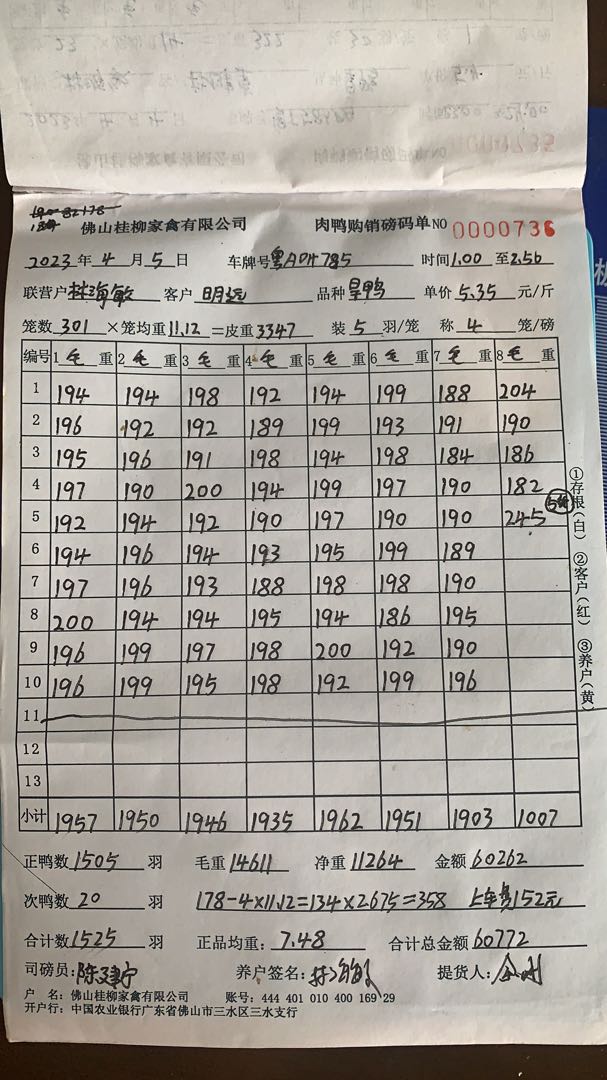 佛山桂柳家禽有限公司 肉鸭购销磅码单 NO 0000736
2023 年 4 月 5 日 车牌号 粤A0H785 时间 1.00 至 2.56
联营户 林海敏 客户 明远 品种 旱鸭 单价 5.35 元/斤
笼数 301 ×笼均重 11.12 =皮重 3347 装 5 羽/笼 称 4 笼/磅
编号 1 毛 重 2 毛 重 3 毛 重 4 毛 重 5 毛 重 6 毛 重 7 毛 重 8 毛 重
1 194 194 198 192 194 199 188 204
2 196 192 192 189 199 193 191 190
3 195 196 191 198 194 198 184 186
4 197 190 200 194 199 197 190 182
5 192 194 192 190 197 190 190 245
6 194 196 194 193 195 199 189
7 197 196 193 188 198 198 190
8 200 194 194 195 194 186 195
9 196 199 197 198 200 192 190
10 196 199 195 198 192 199 196
11
12
13
小计 1957 1950 1946 1935 1962 1951 1903 1007
①存根(白) ②客户(红) ③养户(黄)
正鸭数 1505 羽 毛重 14611 净重 11264 金额 60262
次鸭数 20 羽 178-4×11.12=134×2.675=358 上车费152元
合计数 1525 羽 正品均重: 7.48 合计总金额 60772
司磅员: 陈建宁 养户签名: 林海敏 提货人:
户 名: 佛山桂柳家禽有限公司 账号: 444 401 010 400 169 29
开户行: 中国农业银行广东省佛山市三水区三水支行